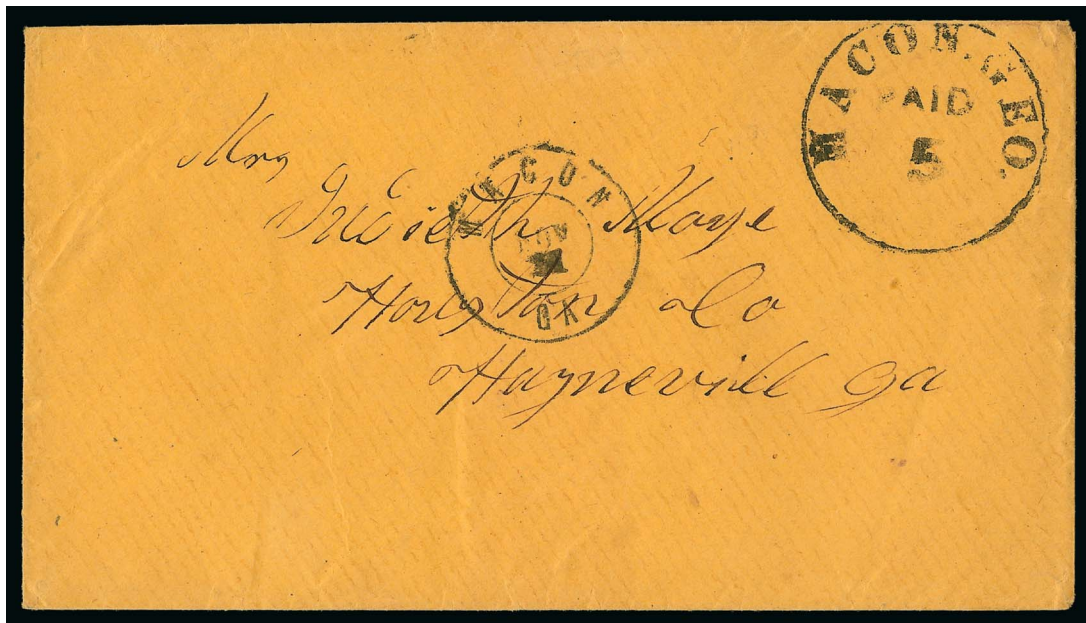 MACON, GEO.
PAID
5
MACON
NOV
GA
Mrs
Houston Co
Haynevill Ga